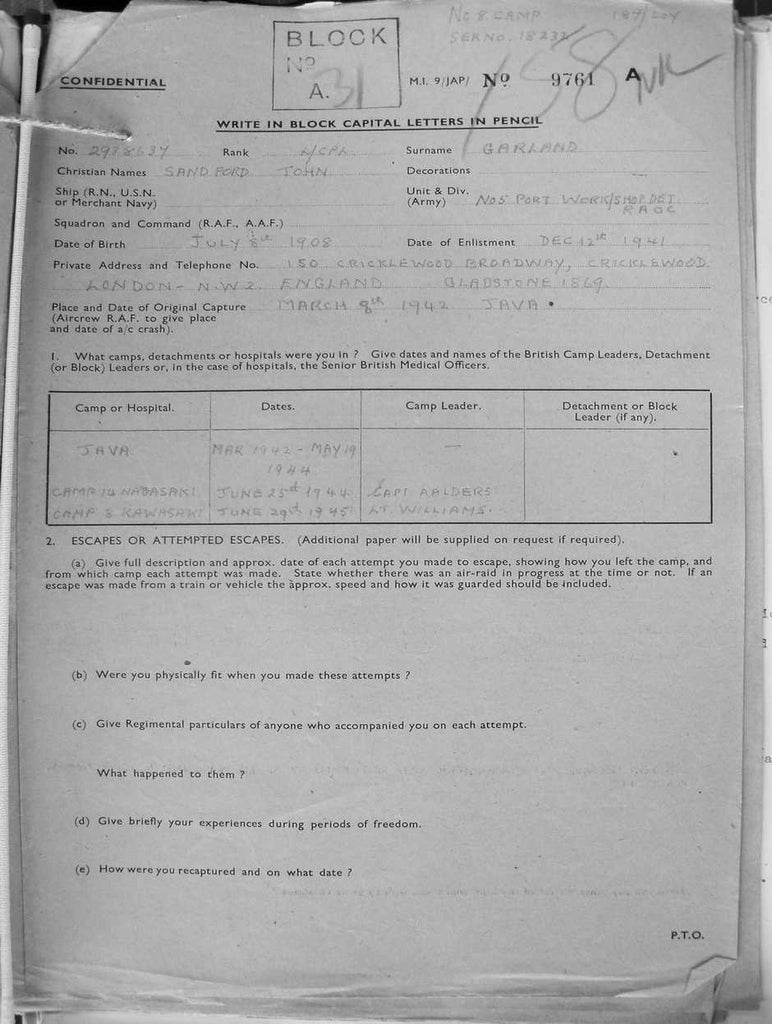 No 8 CAMP
SER NO. 18232
BLOCK
No
A. 31
CONFIDENTIAL
M.I. 9/JAP/ No 9761 A
WRITE IN BLOCK CAPITAL LETTERS IN PENCIL
No. Rank L/CPL Surname GARLAND
Christian Names SANDFORD JOHN Decorations
Ship (R.N., U.S.N.
or Merchant Navy)
Unit & Div.
(Army) No 5 PORT WORK/SHOP DET
RAOC
Squadron and Command (R.A.F., A.A.F.)
Date of Birth JULY 8th 1908 Date of Enlistment DEC 12th 1941
Private Address and Telephone No. 150 CRICKLEWOOD BROADWAY, CRICKLEWOOD
LONDON - N.W.2. ENGLAND GLADSTONE 1869
Place and Date of Original Capture MARCH 8th 1942 JAVA.
(Aircrew R.A.F. to give place
and date of a/c crash).
1. What camps, detachments or hospitals were you in ? Give dates and names of the British Camp Leaders, Detachment
(or Block) Leaders or, in the case of hospitals, the Senior British Medical Officers.
Camp or Hospital. Dates. Camp Leader. Detachment or Block
Leader (if any).
JAVA MAR 1942 - MAY 19 —
1944
CAMP 14 NAGASAKI JUNE 25st 1944 CAPT AALDERS
CAMP 8 KAWASAKI JUNE 29th 1945 LT. WILLIAMS.
2. ESCAPES OR ATTEMPTED ESCAPES. (Additional paper will be supplied on request if required).
(a) Give full description and approx. date of each attempt you made to escape, showing how you left the camp, and
from which camp each attempt was made. State whether there was an air-raid in progress at the time or not. If an
escape was made from a train or vehicle the approx. speed and how it was guarded should be included.
(b) Were you physically fit when you made these attempts ?
(c) Give Regimental particulars of anyone who accompanied you on each attempt.
What happened to them ?
(d) Give briefly your experiences during periods of freedom.
(e) How were you recaptured and on what date ?
P.T.O.